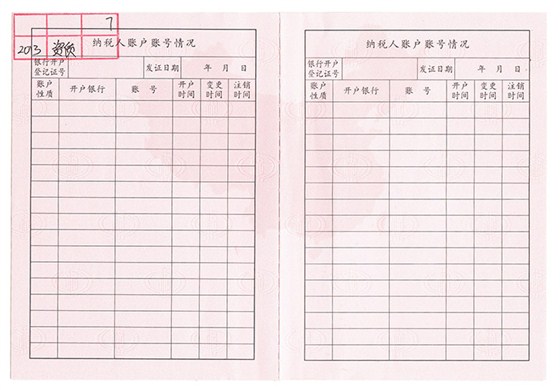 7
2013 资质
纳税人账户账号情况
银行开户登记证号 发证日期 年 月 日
账户性质 开户银行 账 号 开户时间 变更时间 注销时间
纳税人账户账号情况
银行开户登记证号 发证日期 年 月 日
账户性质 开户银行 账 号 开户时间 变更时间 注销时间